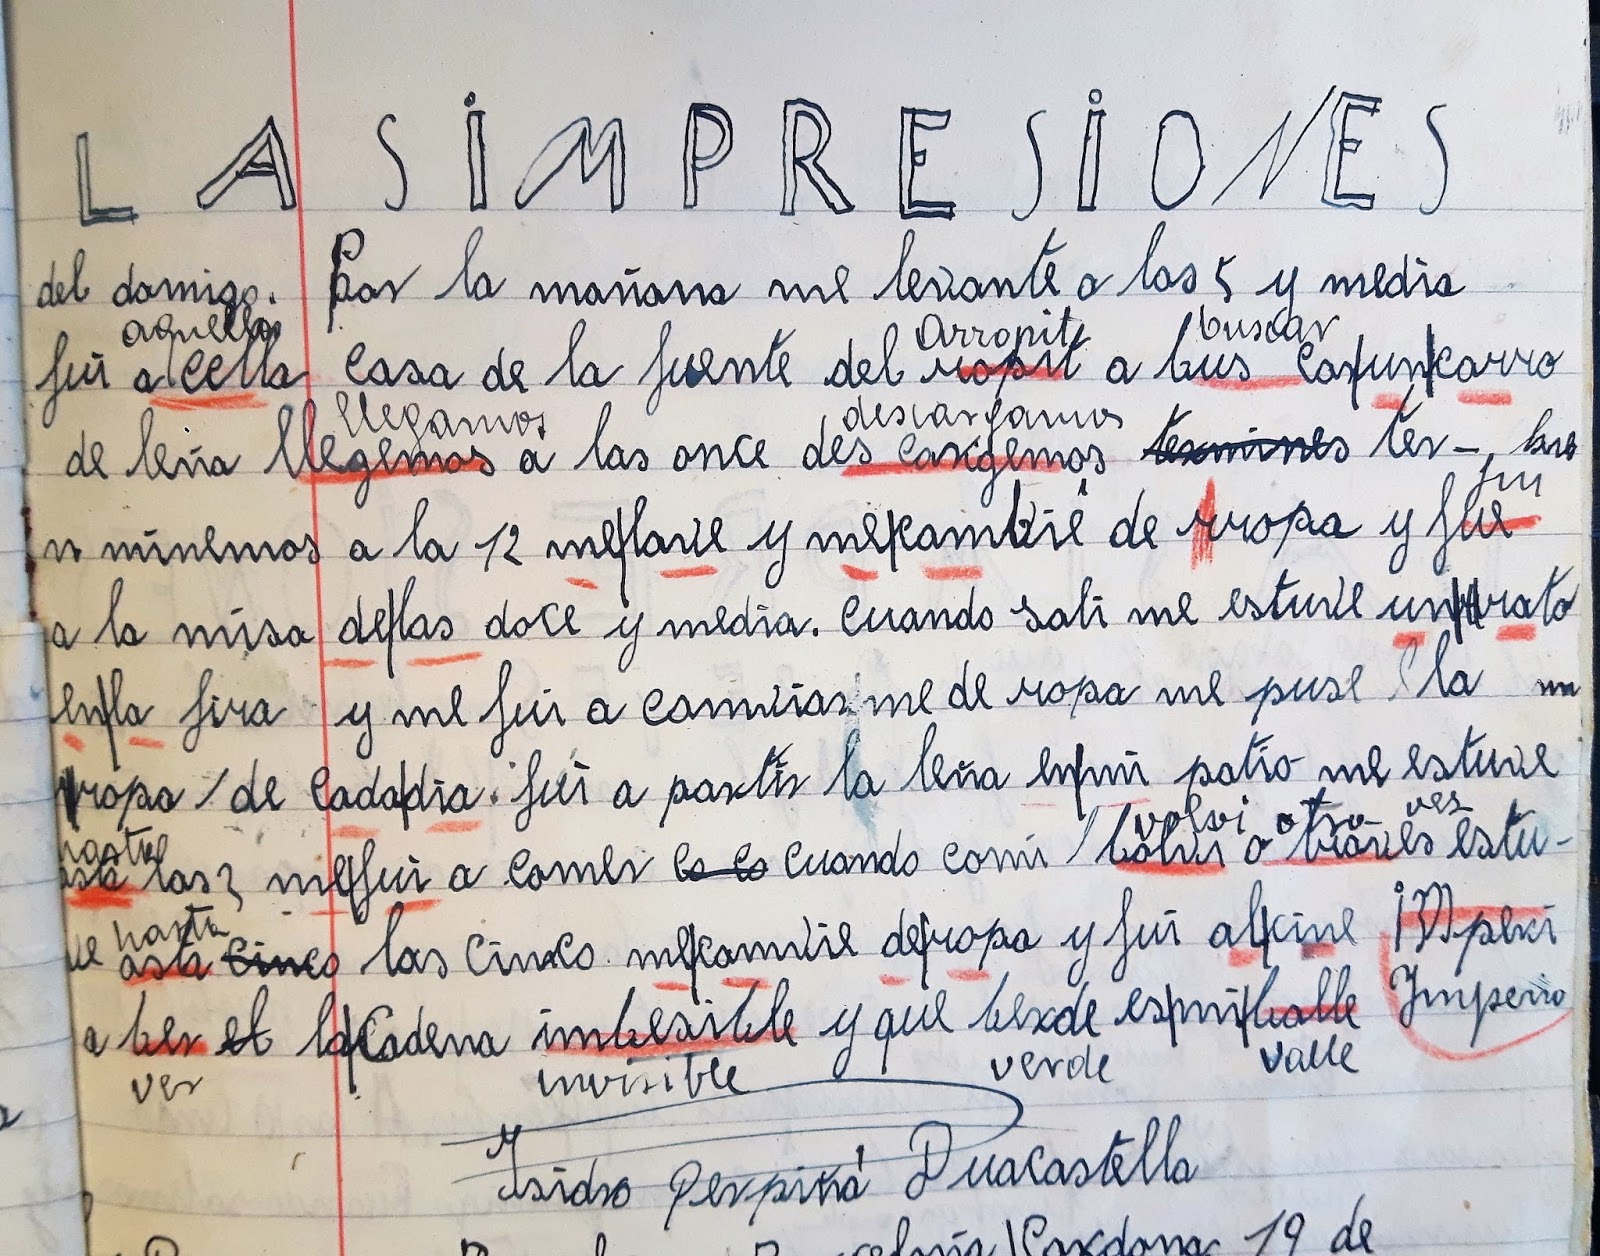 LAS IMPRESIONES
del domigo. Por la mañana me levante a las 5 y media
aquella Arropit buscar
fui a cella casa de la fuente del ropit a bus caf un carro
llegamos descargamos
de leña llegemos a las once des cargemos termines ter-
fui
minemos a la 12 me lave y me cambié de rropa y fue
a la misa de las doce y media. Cuando sali me estuve un rato
en la fira y me fui a camviarme de ropa me puse la
rropa de cada dia. fui a partir la leña en mi patio me estuve
hasta volvi otra vez
asta las 3 me fui a comer cuando comi bolvi o traves estu-
hasta
ve asta cinco las cinco me camvie de ropa y fui al cine imperi
Imperio
a ber el la Cadena imbesible y que berde es mi balle
ver invisible verde valle
Isidro Perpiñá Duacastella
19 de